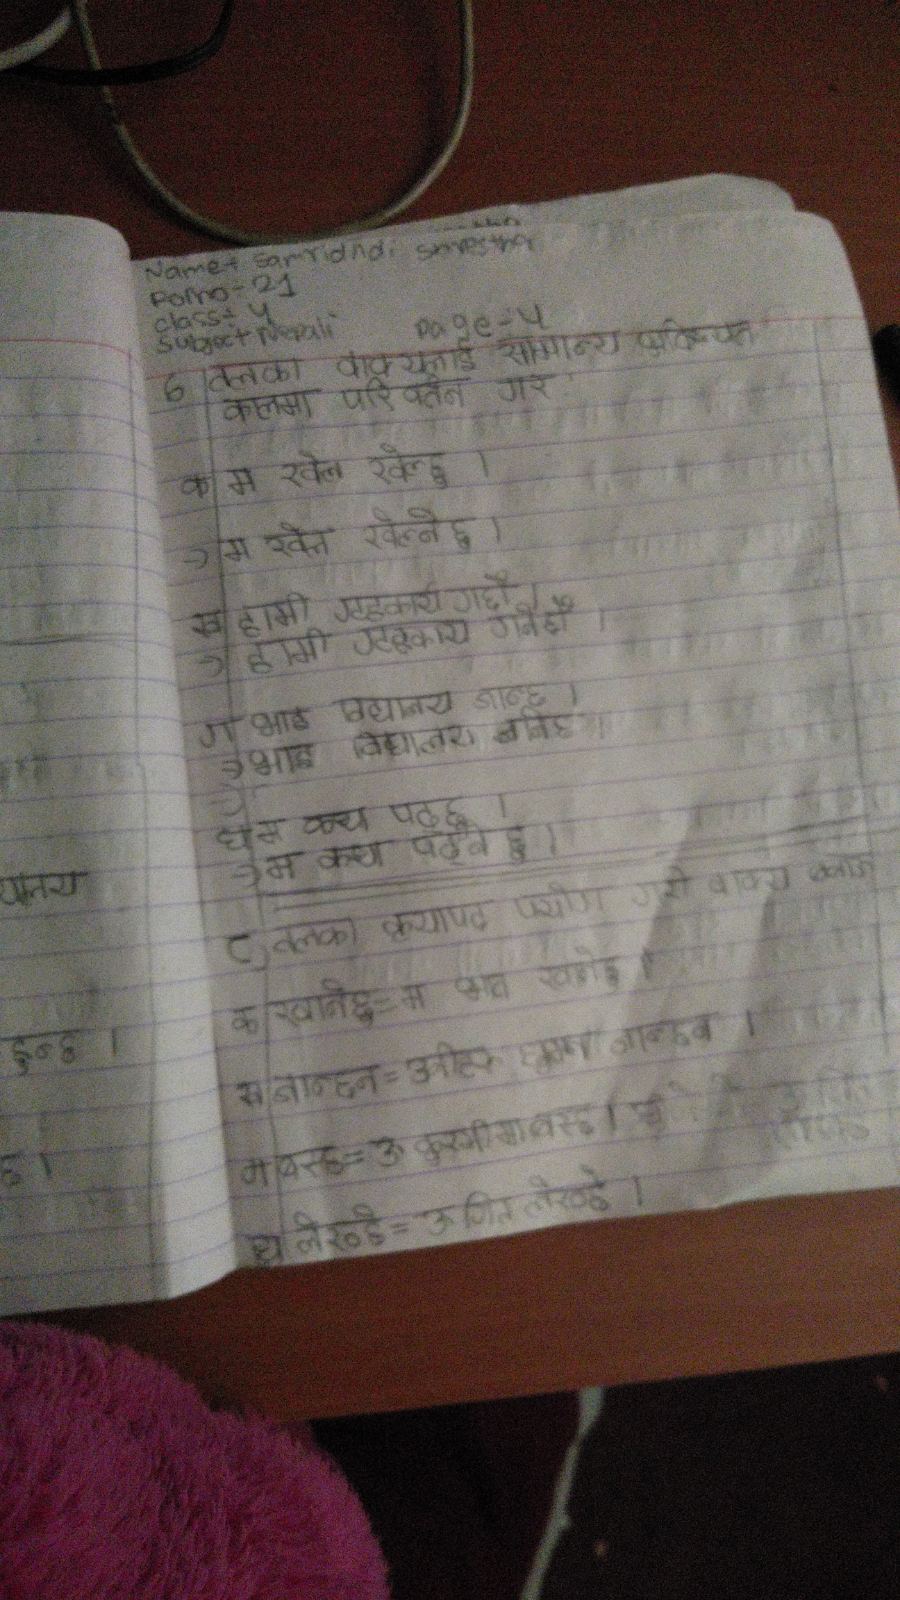 यालय
हुन्छ ।
छ ।
Name: Samridhdi Shrestha
Rollno-21
class: 4
Subject: Nepali page-4
6 तलका वाक्यलाई सामान्य भविष्यत
कालमा परिवर्तन गर
क म खेल खेल्छु ।
→ म खेल खेल्नेछु ।
ख हामी गृहकार्य गर्छौ ।
→ हामी गृहकार्य गर्नेछौँ ।
ग भाइ विद्यालय जान्छ ।
→ भाइ विद्यालय जानेछ ।
घ म कथा पढ्छु ।
→ म कथा पढ्नेछु ।
८ तलका क्रयापद प्रयोग गरी वाक्य बनाऊ
क खानेछु = म भात खानेछु ।
ख जान्छन = घुम्न जान्छन ।
ग बस्छ = ऊ कुरसीमा बस्छ ।
घ लेख्छे = ऊ गित लेख्छे ।